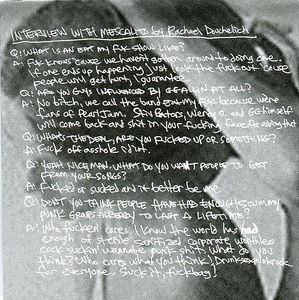 INTERVIEW WITH MESCALITO by Rachael Duchelich
Q: WHAT IS AN EAT MY FUK SHOW LIKE?
A: FUK KNOWS CAUSE WE HAVEN'T GOTTEN AROUND TO DOING ONE.
If one ends up happening just look the fuck out cause
people will get hurt, I guarantee.
Q: ARE YOU GUYS INFLUENCED BY GG ALLIN AT ALL?
A: No bitch, we call the band EAT MY FUK because were
fans of PEARL JAM. Stiv Bators, Wendy O. and GG himself
will come back and shit in your fucking face for asking that
Q: WHAT'S THE DEAL, ARE YOU FUCKED UP OR SOMETHING?
A: Fuck off asshole slit.
Q: YEAH NICE MAN. WHAT DO YOU WANT PEOPLE TO GET
FROM YOUR SONGS?
A: FUCKED or sucked and it better be me.
Q: DON'T YOU THINK PEOPLE HAVE HAD ENOUGH SCUMMY
PUNK GROUPS ALREADY TO LAST A LIFETIME?
A: Who fucken cares. I know the world has had
enough of sterile sanitized corporate worthless
cock suckin wannabe punk shit. What do you
think? Who cares what you think, Drunksexnihilrock
for everyone. Suck it, fuckbag!